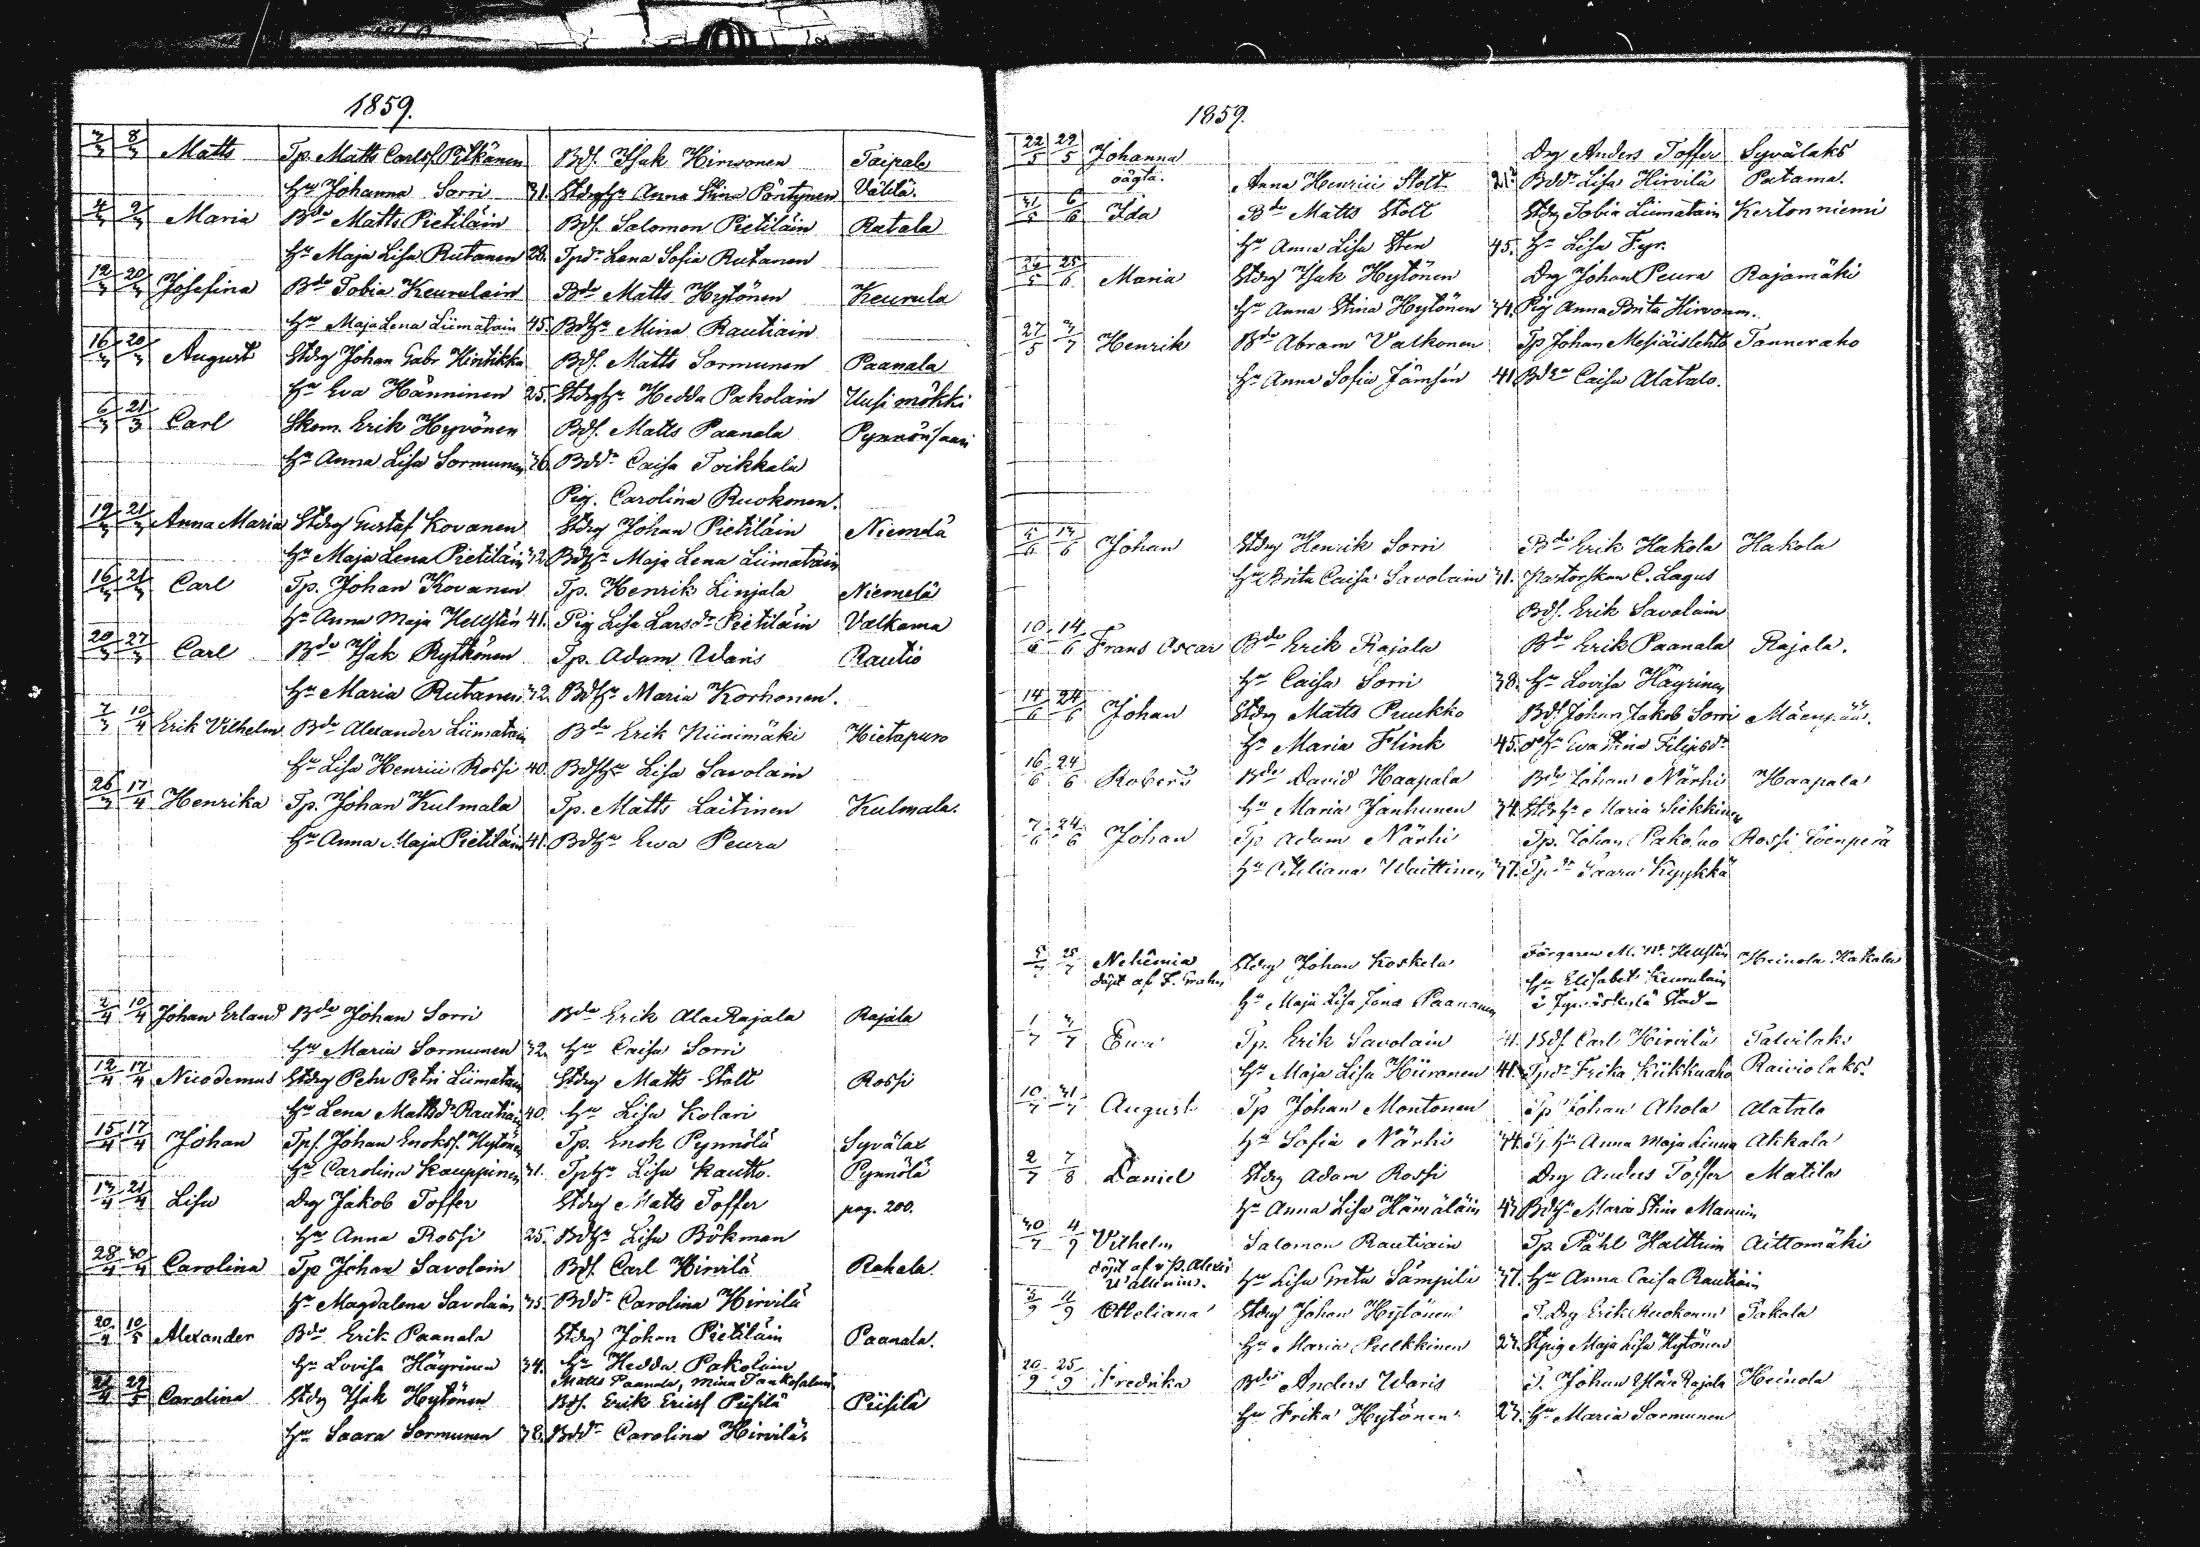 1859.
3/3 8/3 Matts Tp. Matts Carlsf. Pitkänen Bdf. Isak Hirwonen Taipale
Hu Johanna Sorri 31. Stdrghu Anna Stina Pöntynen Väldä.
4/3 9/3 Maria Bde Matts Pietiläin Bdf. Salomon Pietiläin Ratala
Hu Maja Lisa Rutanen 28. Tpdr Lena Sofia Rutanen
12/3 20/3 Josefina Bde Tobia Keurulain Bde Matts Hytönen Keurula
Hu Maja Lena Liimatain 45. Bdhu Mina Rautiain
16/3 20/3 August Stdrg Johan Gabr Hintikka Bdf. Matts Sormunen Paanala
Hu Eva Hänninen 25. Stdrghu Hedda Pakolain Uusi mökki
6/3 21/3 Carl Skom. Erik Hyvönen Bdf. Matts Paanala Pynnönsaari
Hu Anna Lisa Sormunen 36. Bddr Caisa Toikkala
Pig. Carolina Ruokonen.
19/3 21/3 Anna Maria Stdrg Gustaf Kovanen Stdrg Johan Pietiläin Niemelä
Hu Maja Lena Pietiläin 32. Bdhu Maja Lena Liimatain
16/3 21/3 Carl Tp. Johan Kovanen Tp. Henrik Linjala Niemelä
Hu Anna Maja Hellsten 41. Pig Lisa Larsdr Pietiläin Valkama
20/3 27/3 Carl Bde Isak Rytkönen Tp. Adam Waris Rautio
Hu Maria Rutanen 32. Bdhu Maria Korhonen.
7/3 10/4 Erik Vilhelm Bde Alexander Liimatain Bde Erik Niinimäki Hietapuro
Hu Lisa Henrici Rossi 40. Bdshu Lisa Savolain
26/3 17/4 Henrika Tp. Johan Kulmala Tp. Matts Laitinen Kulmala.
Hu Anna Maja Pietiläin 41. Bdhu Ewa Peura
2/4 10/4 Johan Erland Bde Johan Sorri Bde Erik Ala Rajala Rajala
Hu Maria Sormunen 32. Hu Caisa Sorri
12/4 17/4 Nicodemus Stdrg Pehr Petri Liimatain Stdrg Matts Stolt Rossi
Hu Lena Mattsdr Rautiain 40. Hu Lisa Kolari
15/4 17/4 Johan Tpf. Johan Enoksf. Hytönen Tp. Enok Pynnölä Syvälax
Hu Carolina Kauppinen 31. Tphu Lisa Kautto. Pynnölä
17/4 21/4 Lisa Drg Jakob Toffer Stdrg Matts Toffer pag. 200.
Hu Anna Rossi 25. Bdhu Lisa Bökman
28/4 30/4 Carolina Tp Johan Savolain Bdf. Carl Hirvilä Rahala.
Hu Magdalena Savolain 35. Bddr Carolina Hirvilä
20/4 10/5 Alexander Bde Erik Paanala Stdrg Johan Pietiläin Paanala.
Hu Lovisa Häyrinen 34. Hu Hedda Pakolain
Matts Paanala, Mina
29/5 Carolina Stdrg Isak Hytönen Bdf. Erik Ericsf Piisilä Piisilä
Hu Saara Sormunen 38. Bddr Carolina Hirvilä
1859.
22/5 29/5 Johanna Drg Anders Toffer Syvälaks
oägta. Anna Henrici Stolt Bddr Lisa Hirvilä Patama.
31/5 6/6 Ida Bde Matts Stolt Stdrg Tobia Liimatain Kertonniemi
Hu Anna Lisa Sten 45. Hu Lisa Fyr.
25/6 Maria Stdrg Isak Hytönen Drg Johan Peura Rajamäki
Hu Anna Stina Hytönen 34. Pig Anna Brita Hirvonen.
27/5 3/7 Henrik Bde Abram Valkonen Tp Johan Mesiäislehto Tanneraho
Hu Anna Sofia Jämsén 41 Bddr Caisa Alatalo.
5/6 13/6 Johan Stdrg Henrik Sorri Bde Erik Hakola Hakola
Hu Brita Caisa Savolain 31. Pastorskan C. Lagus
Bdf. Erik Savolain
10/6 14/6 Frans Oscar Bde Erik Rajala Bde Erik Paanala Rajala.
Hu Caisa Sorri 38. Hu Lovisa Häyrinen
14/6 24/6 Johan Stdrg Matts Puukko Bdf. Johan Jakob Sorri Mäenpää.
Hu Maria Flink 45. Eva Stina Filipsdr
16/6 24/6 Robert Bde David Haapala Bde Johan Närhi Haapala
Hu Maria Janhunen 34. Stdrhu Maria Siekkinen
7/6 24/6 Johan Tp Adam Närhi Tp. Johan Pakoluo Rossi
Hu Otteliana Waittinen 37. Tpdr Saara Kyykkä
5/7 25/7 Nehemia Stdrg Johan Koskela Färgaren M. W. Hellsten Heinola Kakala
döpt af F. Grahn Hu Elisabet Keurulain
Hu Maja Lisa Jona Paananen i Jyväskylä Stad
1/7 3/7 Eva Tp. Erik Savolain Bdf. Carl Hirvilä Talvilaks
Hu Maja Lisa Hiironen 41. Tpdr Frika Kiikkuaho Raiviolaks.
10/7 31/7 August Tp Johan Montonen Tp Johan Ahola Alatalo
Hu Sofia Närhi 34. Tp. Hu Anna Maja Linna Akkala
2/7 7/8 Daniel Stdrg Adam Rossi Drg Anders Toffer Matila
Hu Anna Lisa Hämäläin 43 Bdhu Maria Stina Mannin
30/7 4/9 Vilhelm Salomon Rautiain Tp. Påhl Halttuin Aittomäki
döpt af Hu Lisa Greta Sämpilä 37. Hu Anna Caisa Rautiain
5/9 11/9 Otteliana Stdrg Johan Hytönen T. Drg Erik Ruokonen Pakala
Hu Maria Pelkkinen 27. Stpig Maja Lisa Hytönen
20/9 25/9 Fredrika Bde Anders Waris T. Johan Ylä Rajala Heinola
Hu Frika Hytönen 27. Hu Maria Sormunen